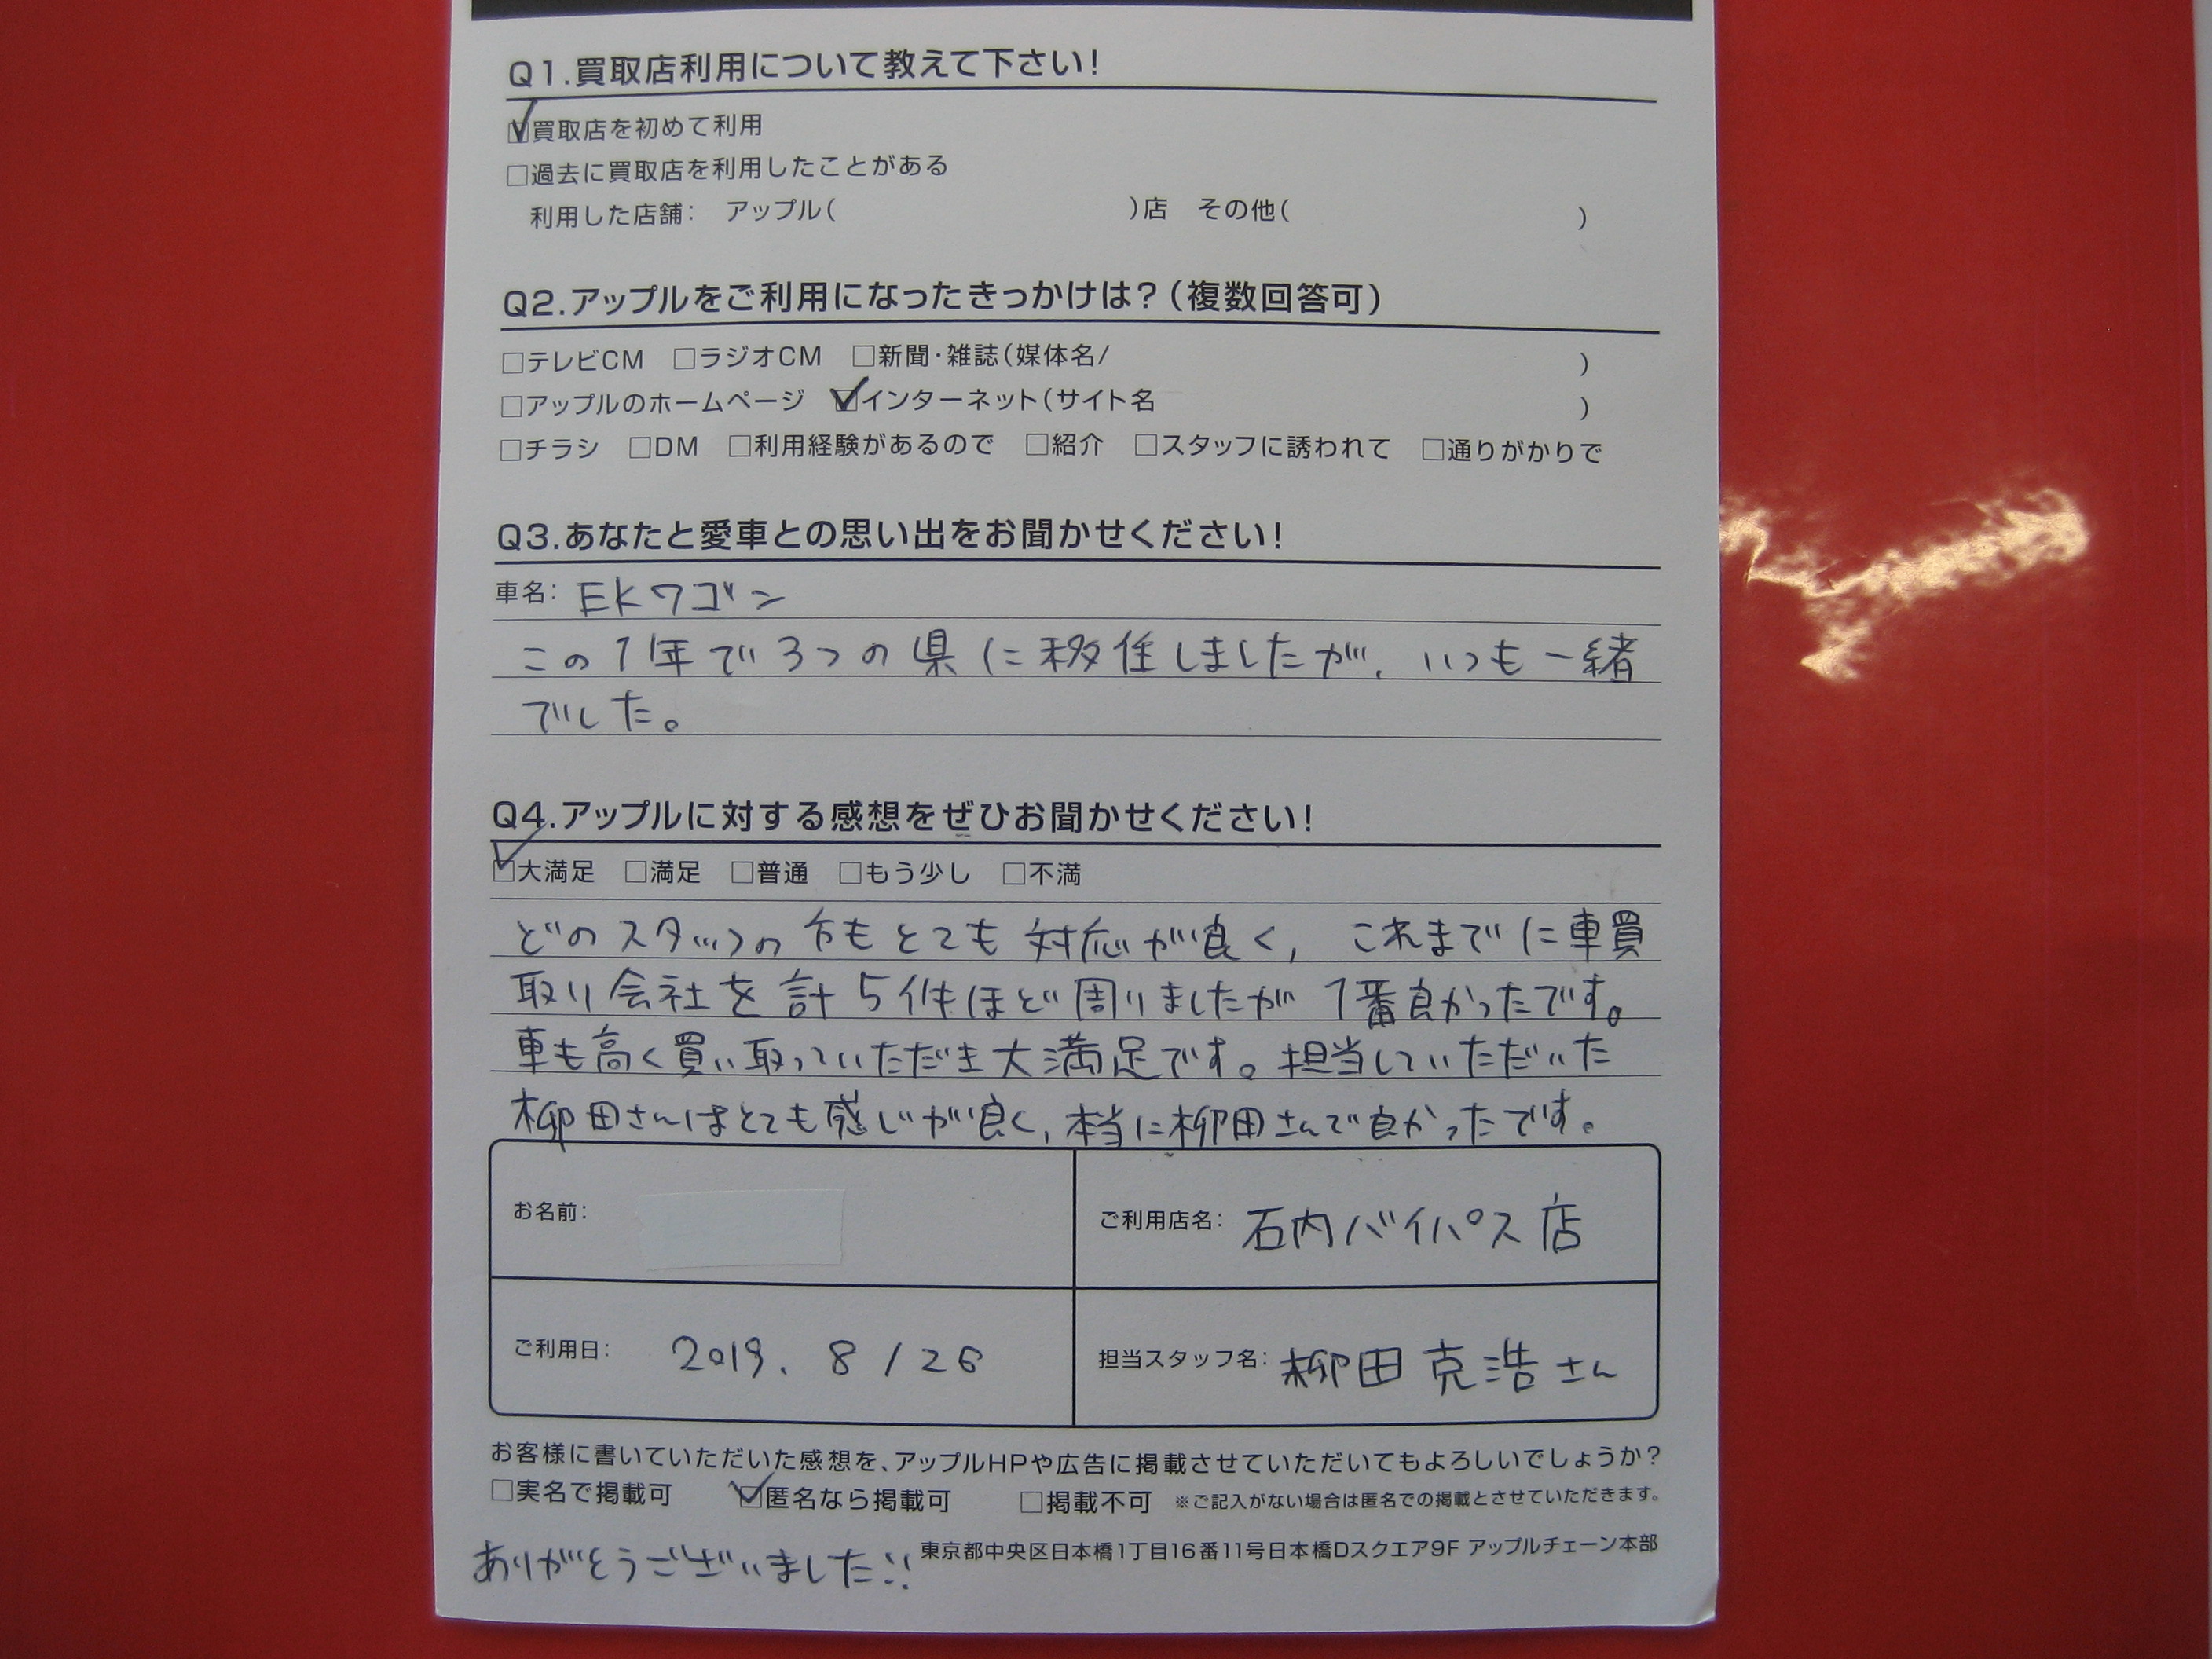 Q1.買取店利用について教えて下さい!
☑買取店を初めて利用
□過去に買取店を利用したことがある
利用した店舗: アップル( )店 その他( )
Q2.アップルをご利用になったきっかけは?(複数回答可)
□テレビCM □ラジオCM □新聞・雑誌(媒体名/ )
□アップルのホームページ ☑インターネット(サイト名 )
□チラシ □DM □利用経験があるので □紹介 □スタッフに誘われて □通りがかりで
Q3.あなたと愛車との思い出をお聞かせください!
車名: EKワゴン
この1年で3つの県に移住しましたが、いつも一緒
でした。
Q4.アップルに対する感想をぜひお聞かせください!
☑大満足 □満足 □普通 □もう少し □不満
どのスタッフの方もとても対応が良く、これまでに車買
取り会社を計5件ほど周りましたが1番良かったです。
車も高く買い取っていただき大満足です。担当していただいた
柳田さんはとても感じが良く、本当に柳田さんで良かったです。
お名前:
ご利用店名: 石内バイパス店
ご利用日: 2019. 8/26
担当スタッフ名: 柳田 克浩さん
お客様に書いていただいた感想を、アップルHPや広告に掲載させていただいてもよろしいでしょうか?
□実名で掲載可 ☑匿名なら掲載可 □掲載不可 ※ご記入がない場合は匿名での掲載とさせていただきます。
東京都中央区日本橋1丁目16番11号日本橋Dスクエア9F アップルチェーン本部
ありがとうございました!!